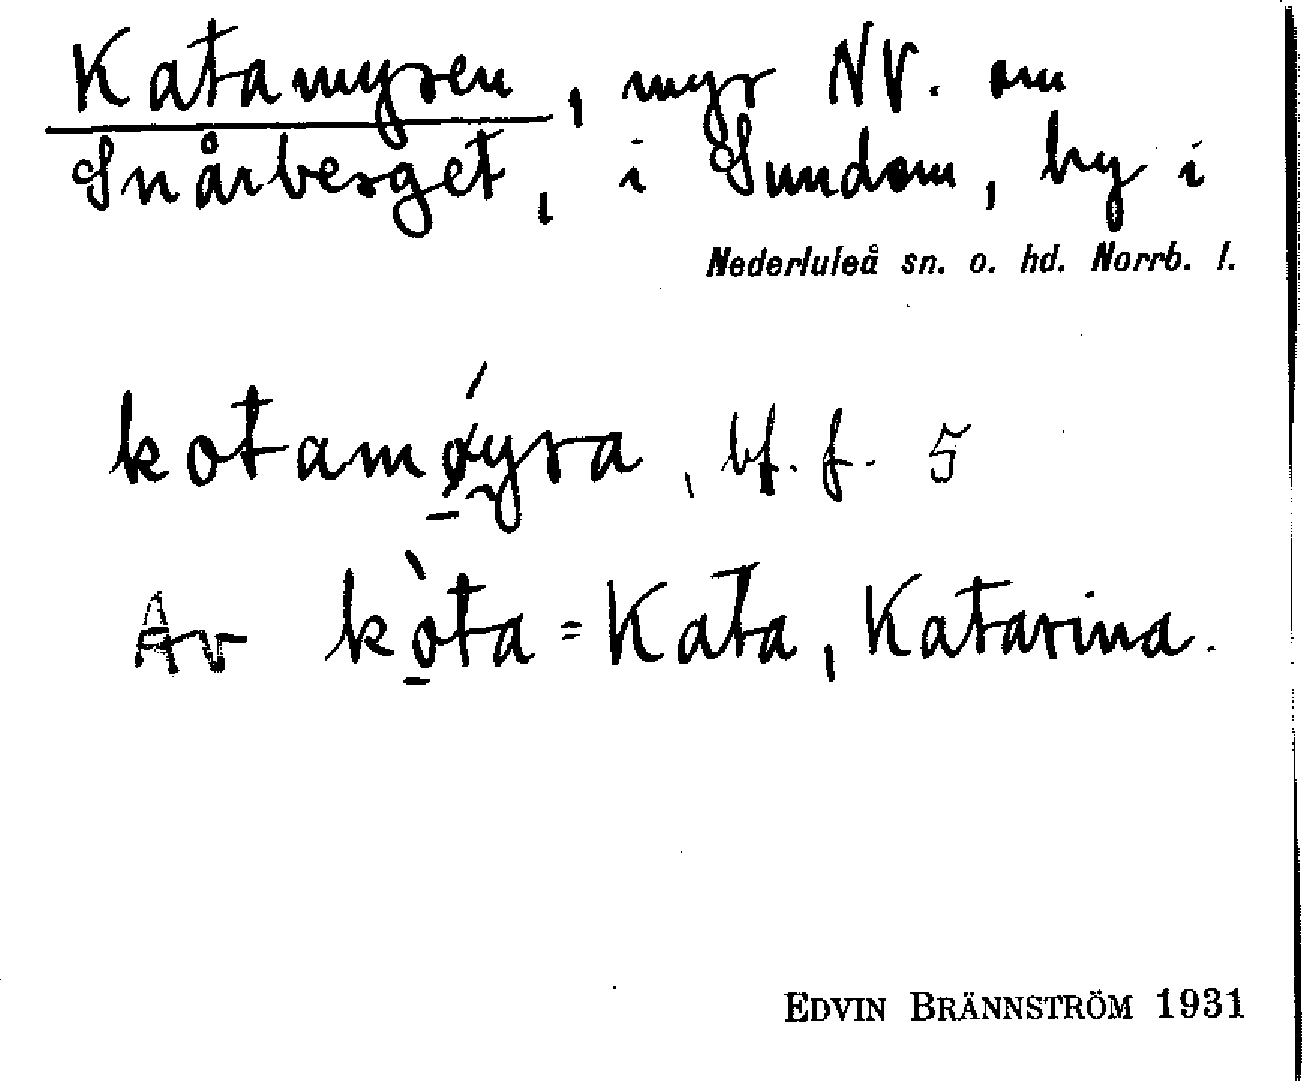 Katamyren, myr NV. om
Snårberget, i Sundom, by i
Nederluleå sn. o. hd. Norrb. l.
kotamǿyra, bf. f. 5
Av kòta = Kata, Katarina.
EDVIN BRÄNNSTRÖM 1931